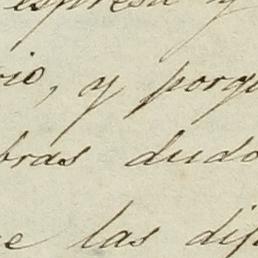 espresa y
rio, y porqu
bras dudo
ue las dis